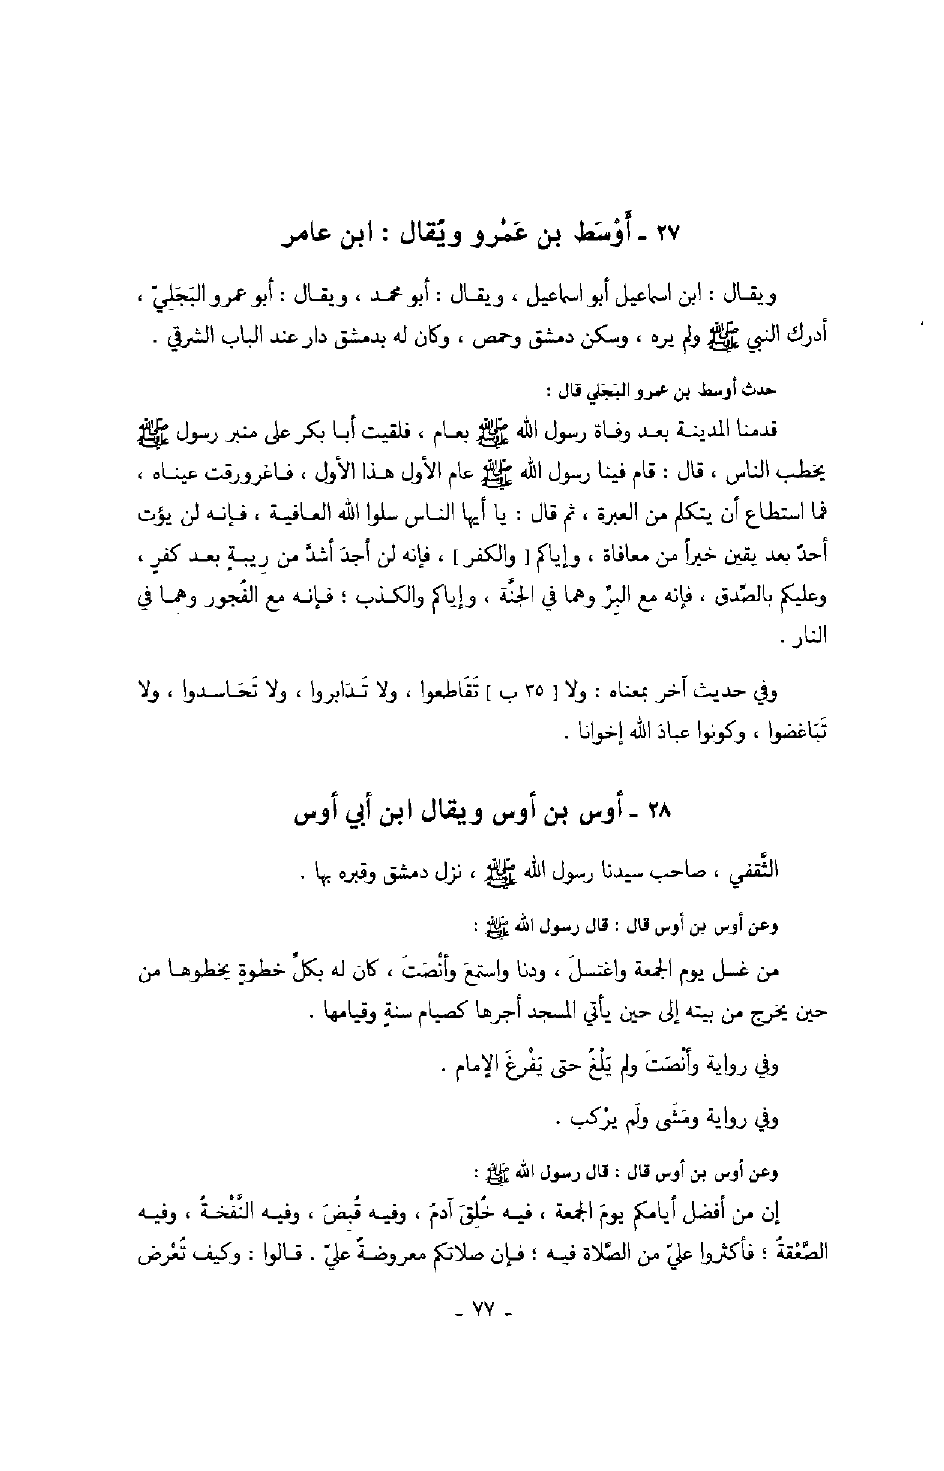 ٢٧ ـ أَوْسَط بن عَمْرو ويُقال : ابن عامر
ويقال : ابن اسماعيل أبو اسماعيل ، ويقال : أبو محمد ، ويقال : أبو عمرو البَجَليّ ،
أدرك النبي ﷺ ولم يره ، وسكن دمشق وحمص ، وكان له بدمشق دار عند الباب الشرقي .
حدث أوسط بن عمرو البَجَلي قال :
قدمنا المدينة بعد وفاة رسول الله ﷺ بعام ، فلقيت أبا بكر على منبر رسول ﷺ
يخطب الناس ، قال : قام فينا رسول الله ﷺ عام الأول هذا الأول ، فاغرورقت عيناه ،
فما استطاع أن يتكلم من العبرة ، ثم قال : يا أيها الناس سلوا الله العافية ، فإنه لن يؤت
أحدٌ بعد يقين خيراً من معافاة ، وإياكم [ والكفر ] ، فإنه لن أجدَ أشدَّ من رِيبةٍ بعد كفرٍ ،
وعليكم بالصِّدق ، فإنه مع البِرِّ وهما في الجنَّة ، وإياكم والكذب ؛ فإنه مع الفُجور وهما في
النار .
وفي حديث آخر بمعناه : ولا [ ٣٥ ب ] تَقَاطعوا ، ولا تَدَابروا ، ولا تَحَاسدوا ، ولا
تَبَاغضوا ، وكونوا عبادَ الله إخوانا .
٢٨ ـ أوس بن أوس ويقال ابن أبي أوس
الثَّقفي ، صاحب سيدنا رسول الله ﷺ ، نزل دمشق وقبره بها .
وعن أوس بن أوس قال : قال رسول الله ﷺ :
من غسل يوم الجمعة واغتسلَ ، ودنا واستمعَ وأنْصَتَ ، كان له بكلِّ خطوةٍ يخطوها من
حين يخرج من بيته إلى حين يأتي المسجد أجرها كصيام سنةٍ وقيامها .
وفي رواية وأنْصَتَ ولم يَلْغُ حتى يَفْرغَ الإمام .
وفي رواية ومَشَى ولَم يرْكب .
وعن أوس بن أوس قال : قال رسول الله ﷺ :
إن من أفضل أيامكم يومَ الجمعة ، فيه خُلِقَ آدمُ ، وفيه قُبِضَ ، وفيه النَّفْخةُ ، وفيه
الصَّعْقةُ ؛ فأكثروا عليّ من الصَّلاة فيه ؛ فإن صلاتكم معروضةٌ عليّ . قالوا : وكيف تُعْرض
ـ ٧٧ ـ